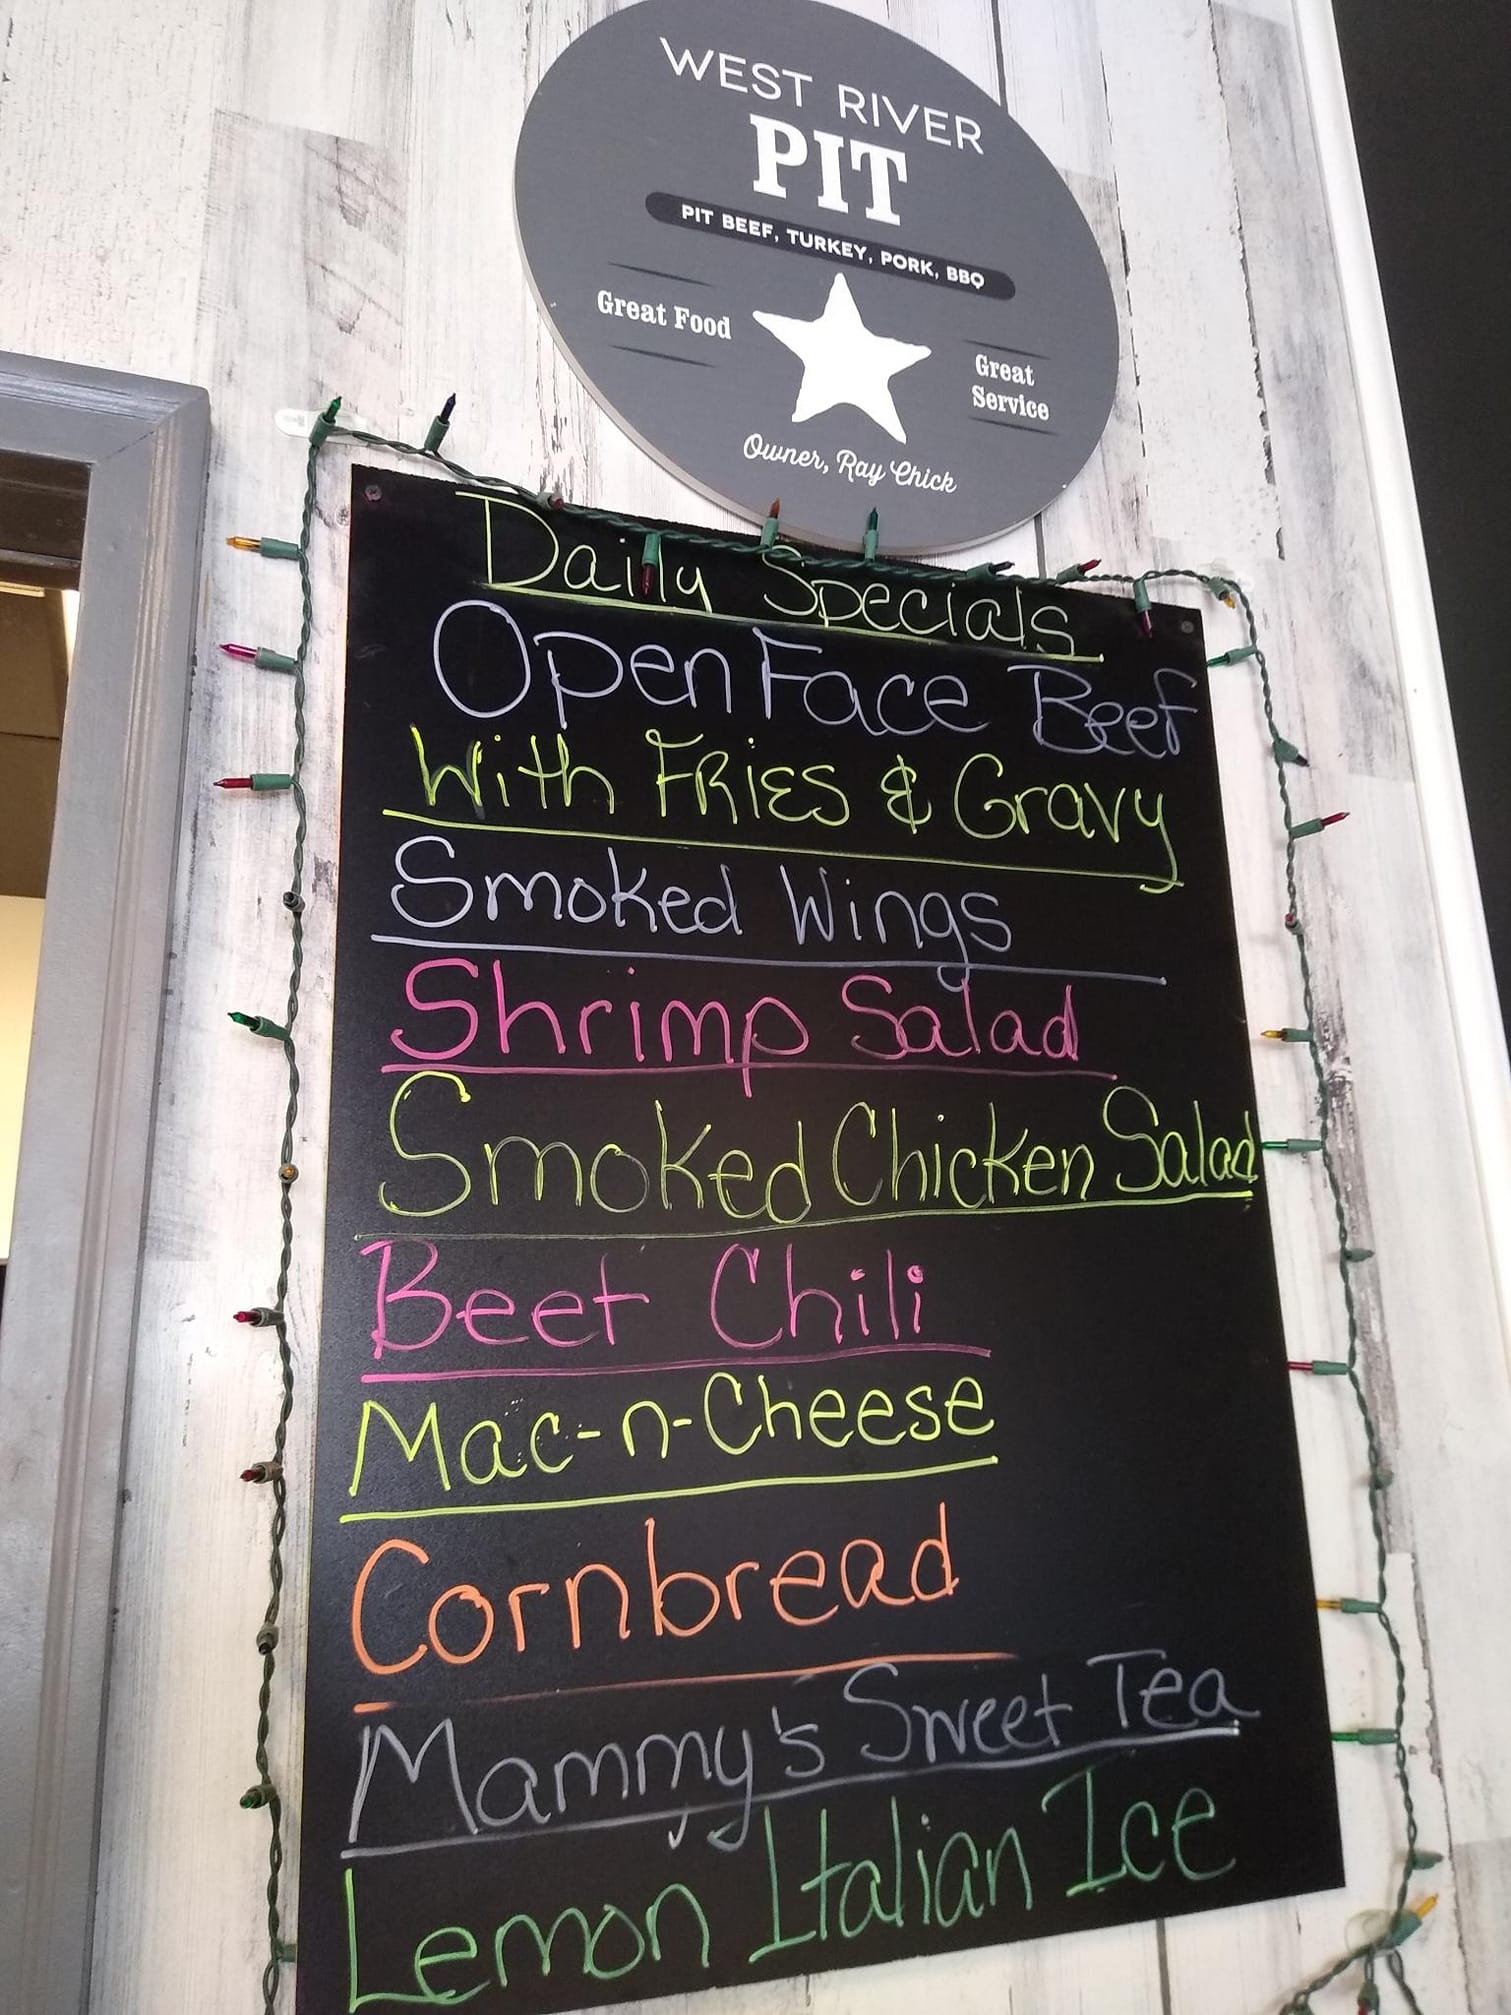 WEST RIVER
PIT
PIT BEEF, TURKEY, PORK, BBQ
Great Food
Great
Service
Owner, Ray Chick
Daily Specials
Open Face Beef
With Fries & Gravy
Smoked Wings
Shrimp Salad
Smoked Chicken Salad
Beef Chili
Mac-n-Cheese
Cornbread
Mammy's Sweet Tea
Lemon Italian Ice